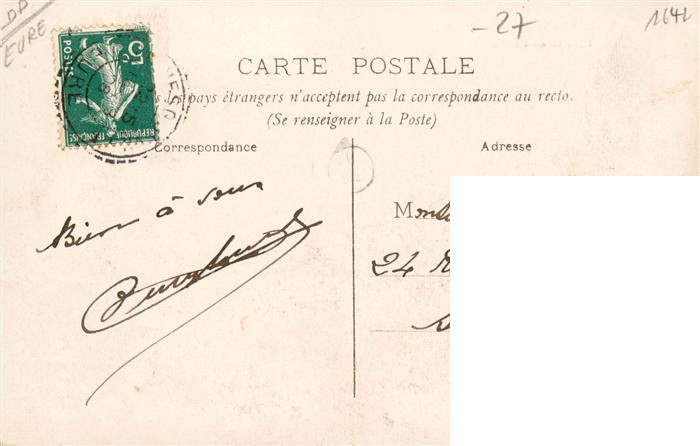 DP
EURE
- 27
1642
5c
POSTES
REPUBLIQUE FRANÇAISE
EURE
CARTE POSTALE
pays étrangers n'acceptent pas la correspondance au recto.
(Se renseigner à la Poste)
Correspondance
Adresse
Bien à vous
M
24